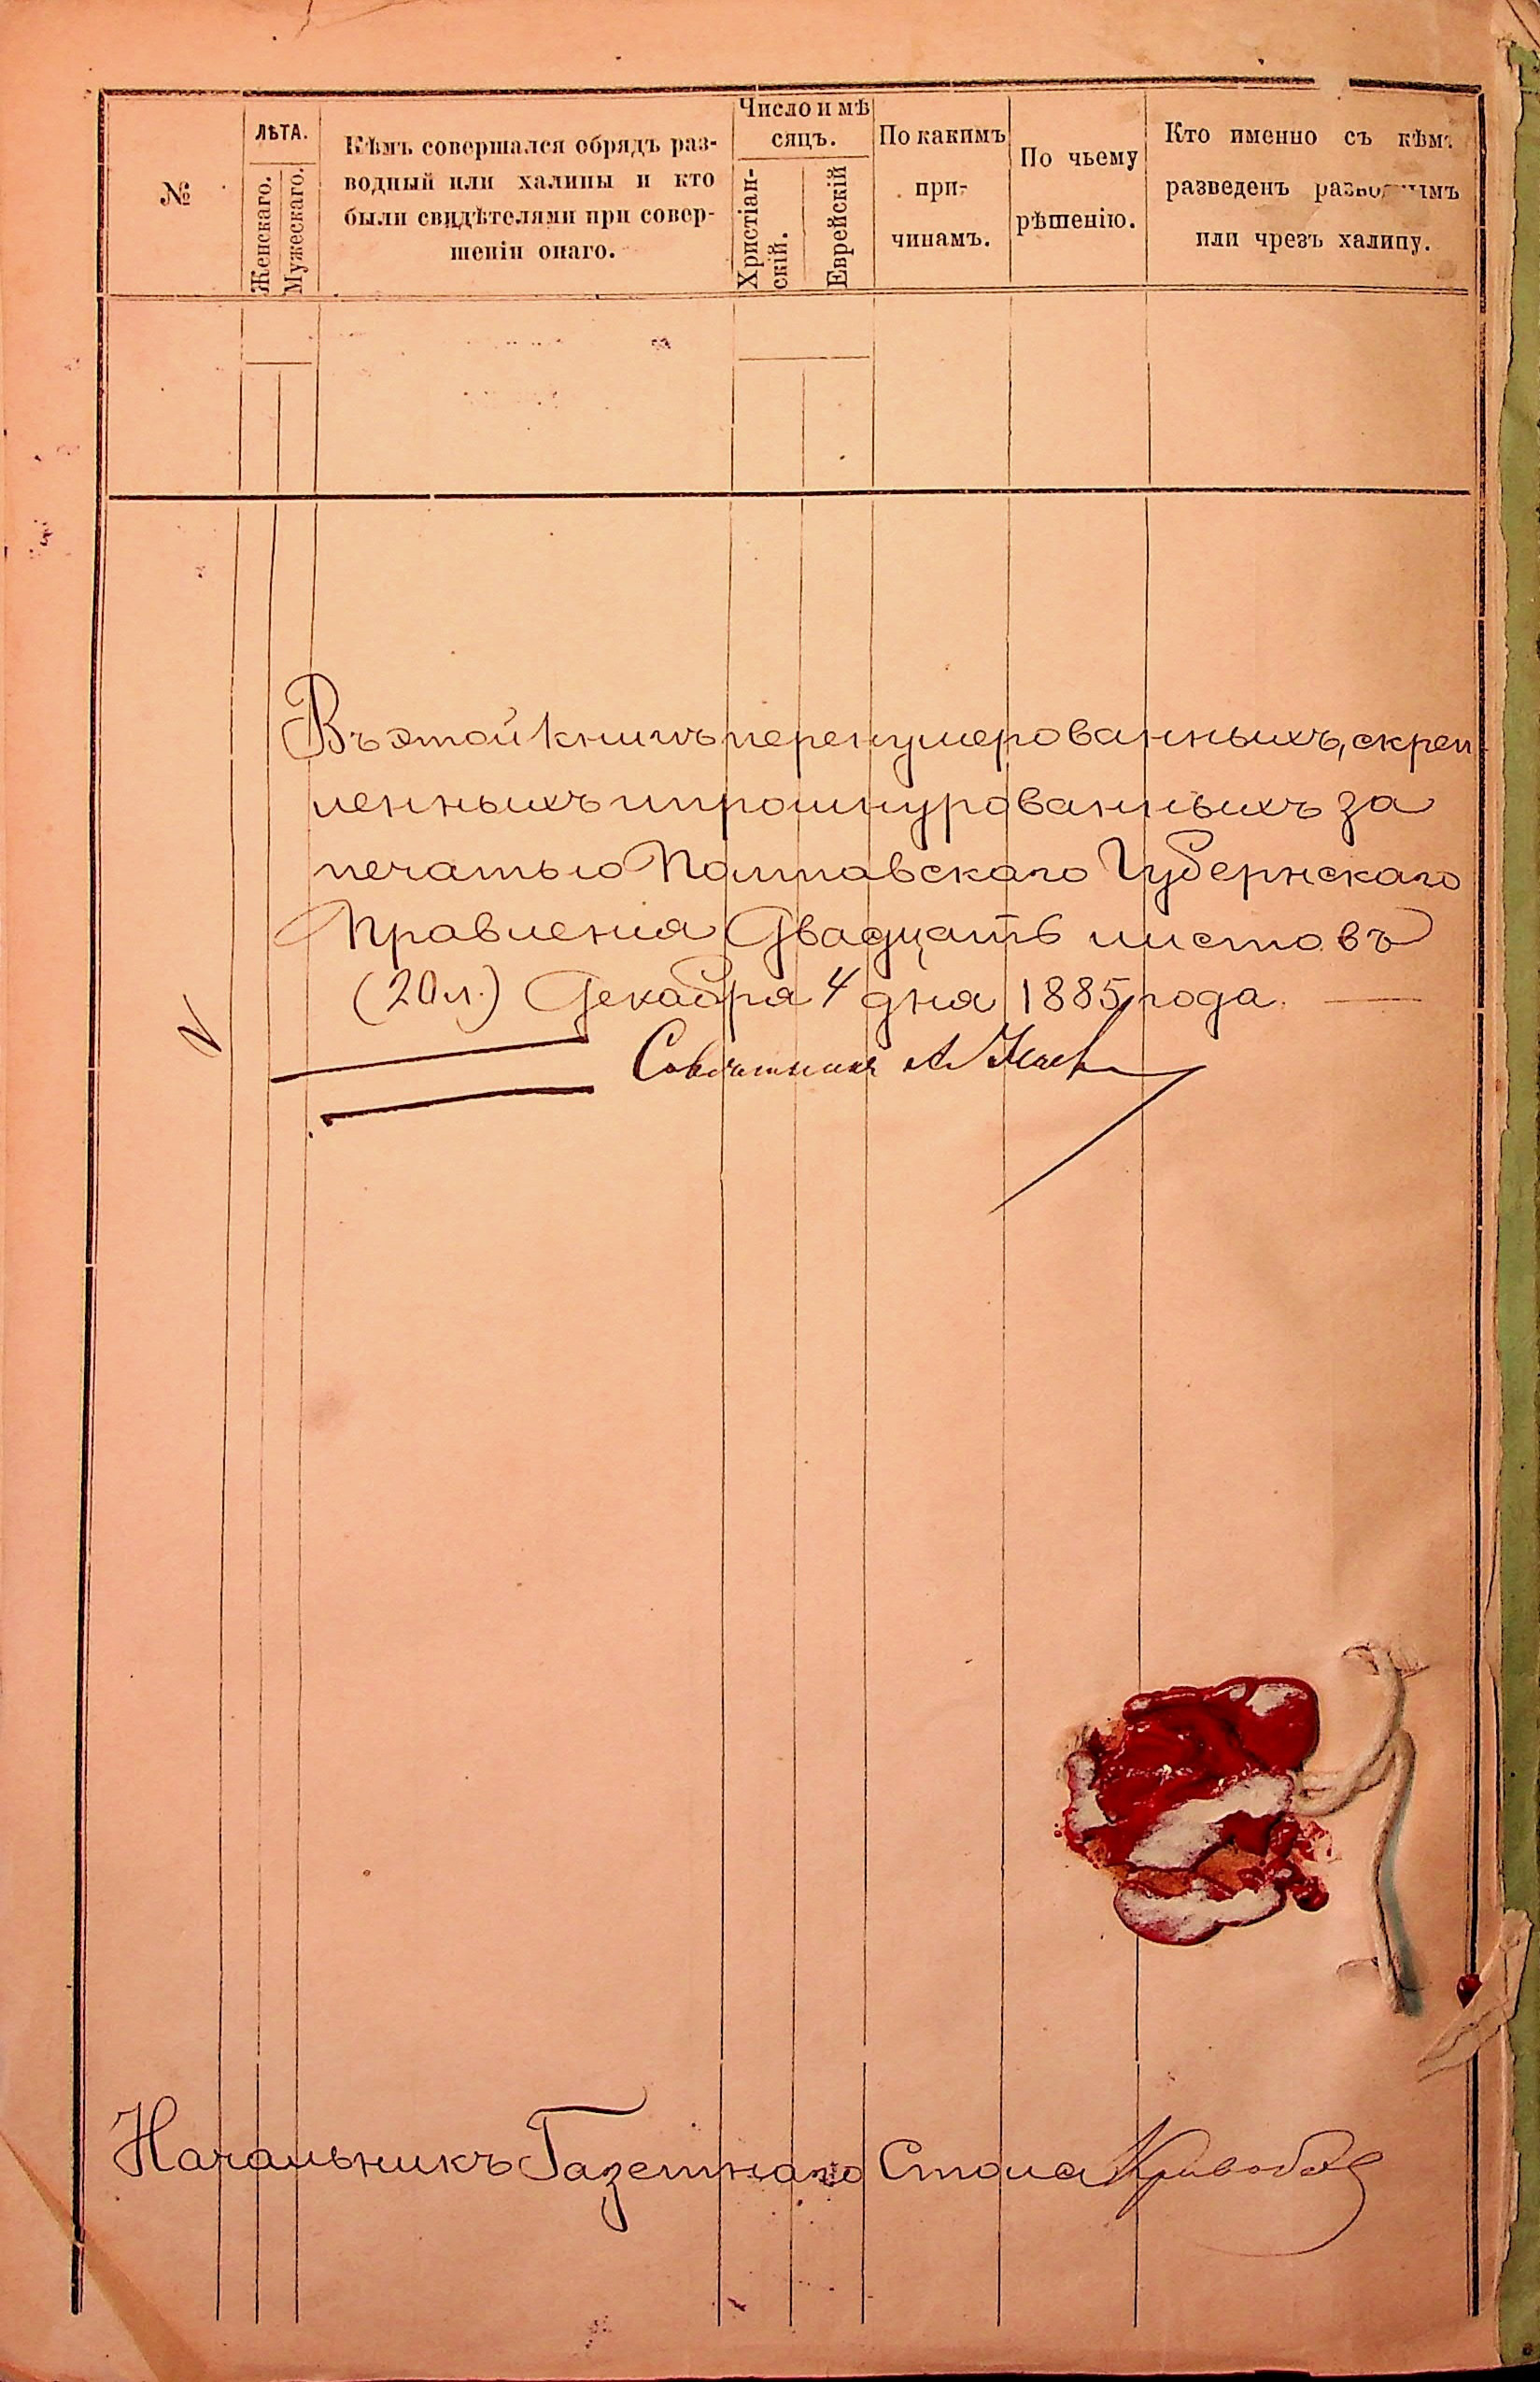 №
ЛѢТА.
Женскаго.
Мужескаго.
Кѣмъ совершался обрядъ раз-
водный или халицы и кто
были свидѣтелями при совер-
шеніи онаго.
Число и мѣ
сяцъ.
Христіан-
скій.
Еврейскій
По какимъ
при-
чинамъ.
По чьему
рѣшенію.
Кто именно съ кѣмъ
разведенъ разводнымъ
или чрезъ халицу.
Въ этой книгѣ перенумерованныхъ, скреп
ленныхъ и прошнурованныхъ за
печатью Полтавскаго Губернскаго
Правленія Двадцать листовъ
(20 л.) Декабря 4 дня 1885 года.
Совѣтникъ А.
Начальникъ Газетнаго Стола